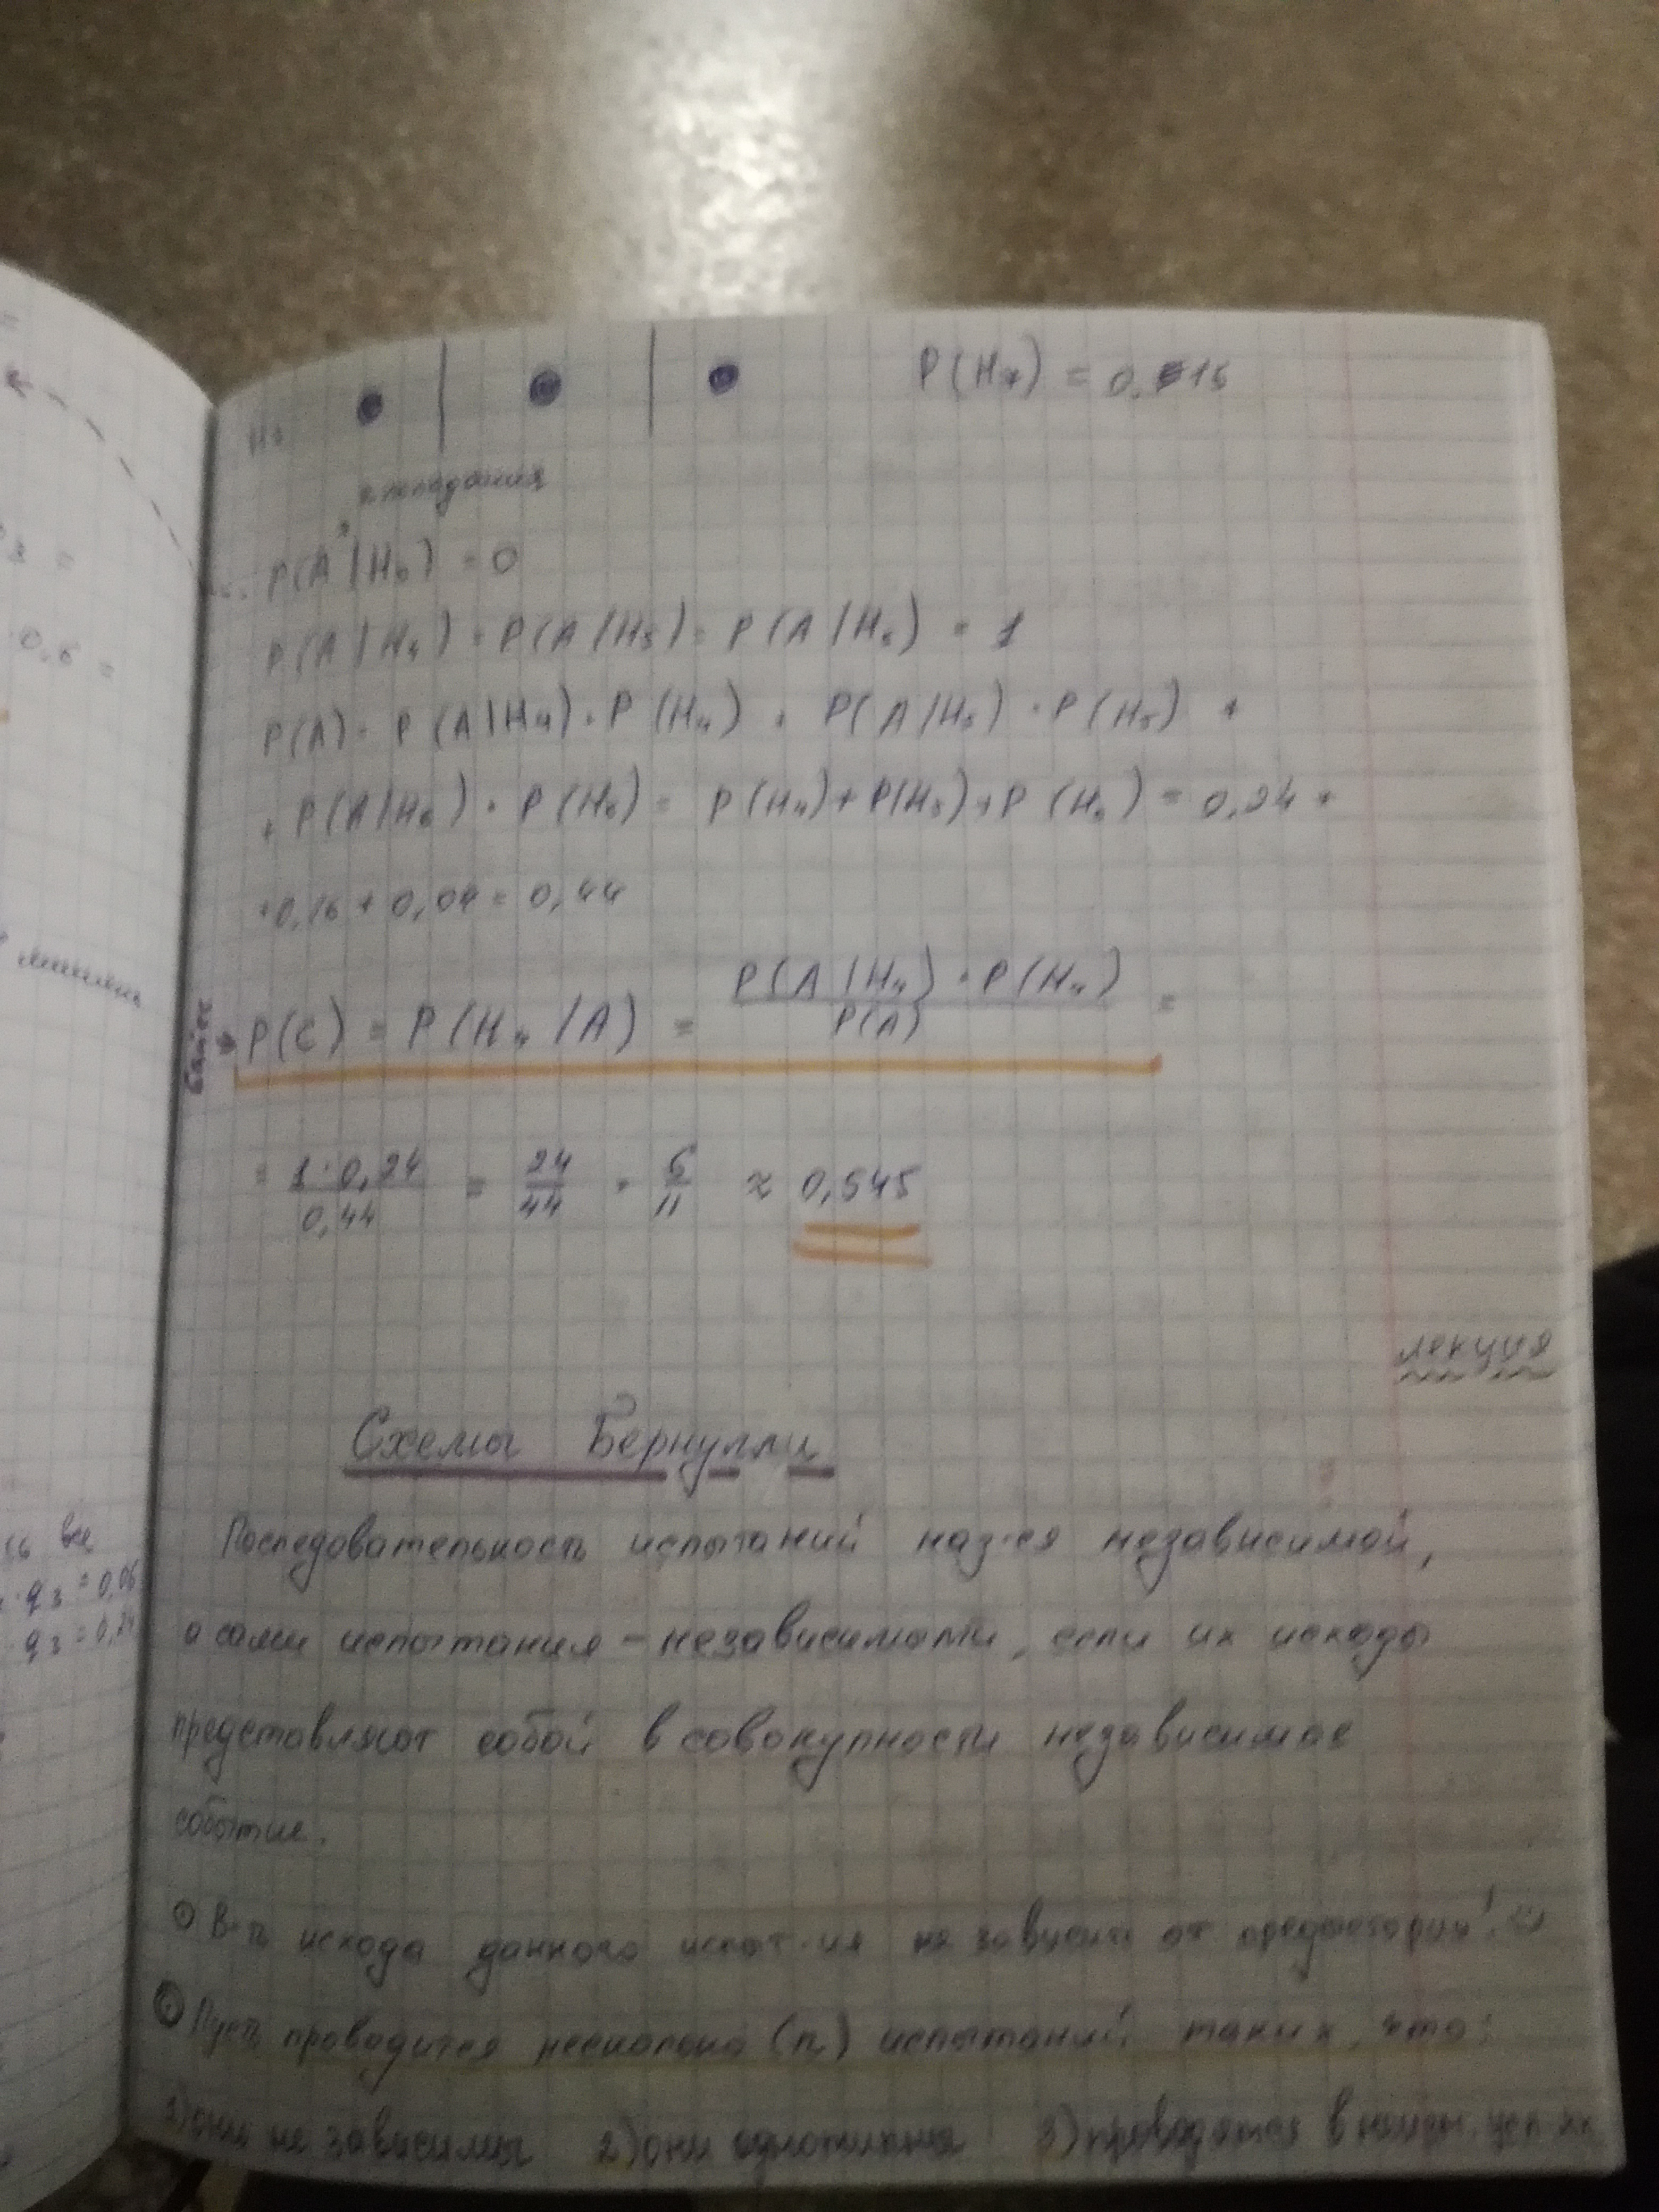 P(H₇) = 0,16
попадания
P(A|H₀) = 0
P(A|H₄) = P(A|H₅) = P(A|H₆) = 1
P(A) = P(A|H₄) · P(H₄) + P(A|H₅) · P(H₅) +
+ P(A|H₆) · P(H₆) = P(H₄) + P(H₅) + P(H₆) = 0,24 +
+ 0,16 + 0,04 = 0,44
Байес
P(C) = P(H₄/A) = P(A|H₄) · P(H₄) / P(A) =
= 1 · 0,24 / 0,44 = 24/44 = 6/11 ≈ 0,545
лекция
Схемы Бернулли
Последовательность испытаний наз-ся независимой,
а сами испытания – независимыми, если их исходы
представляют собой в совокупности независимое
событие.
В-ть исхода данного испыт-ия не зависит от предыстории!
Пусть проводится несколько (n) испытаний таких, что:
1) они не зависимы 2) они однотипные 3) проводятся в
· 0,6 =
мишень
все
· q₃ = 0,06
· q₃ = 0,24